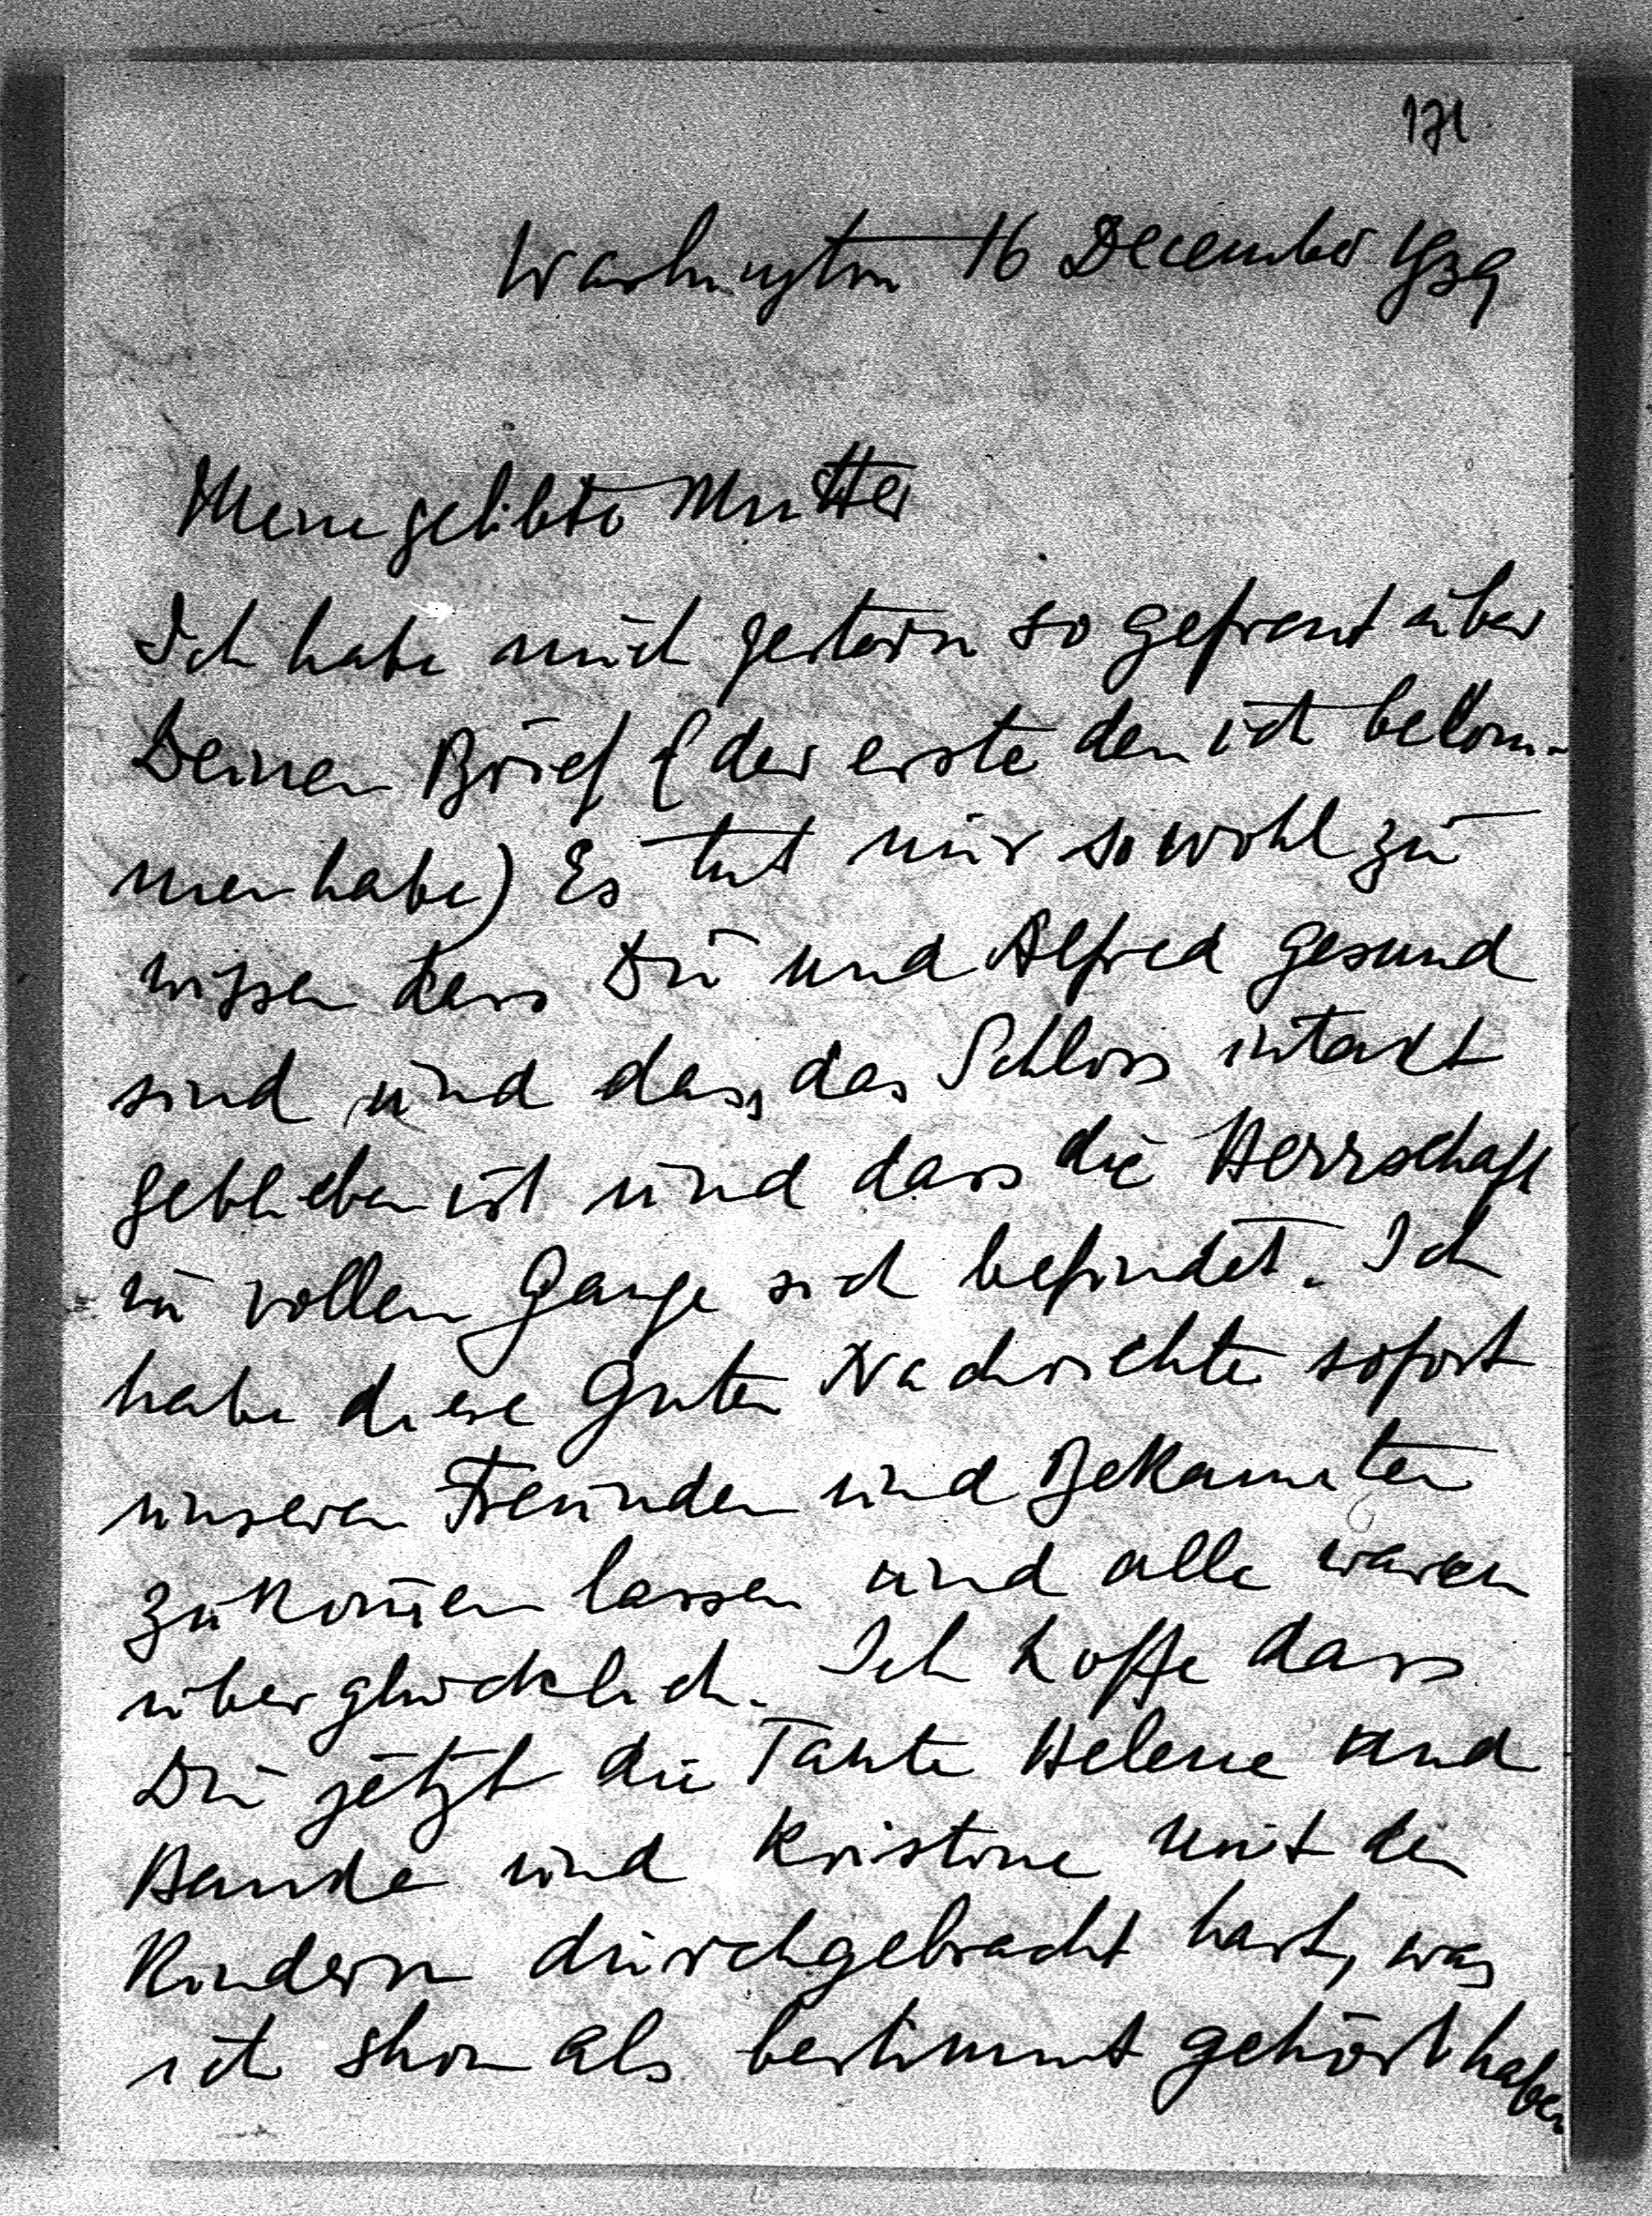 171
Washington 16 December 1939
Meine gelibte Mutter
Ich habe mich gestern so gefreut über
Deinen Brief (der erste den ich bekom-
men habe) Es tut mir so wohl zu
wissen dass Du und Alfred gesund
sind und dass das Schloss intakt
geblieben ist und dass die Herrschaft
in vollen Gange sich befindet. Ich
habe diese guten Nachrichte sofort
unseren Freunden und Bekannten
zukom̄en lassen und alle waren
überglücklich. Ich hoffe dass
Du jetzt die Tante Helene und
und Kristine mit den
Kindern durchgebracht hast, was
ich shon als bestimmt gehört habe.